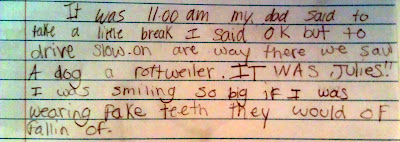 It was 11:00 am my dad said to
take a little break I said OK but to
drive slow. on are way there we saw
A dog a rottweiler. IT WAS Julies!!
I was smiling so big if I was
wearing fake teeth they would of
fallin of.